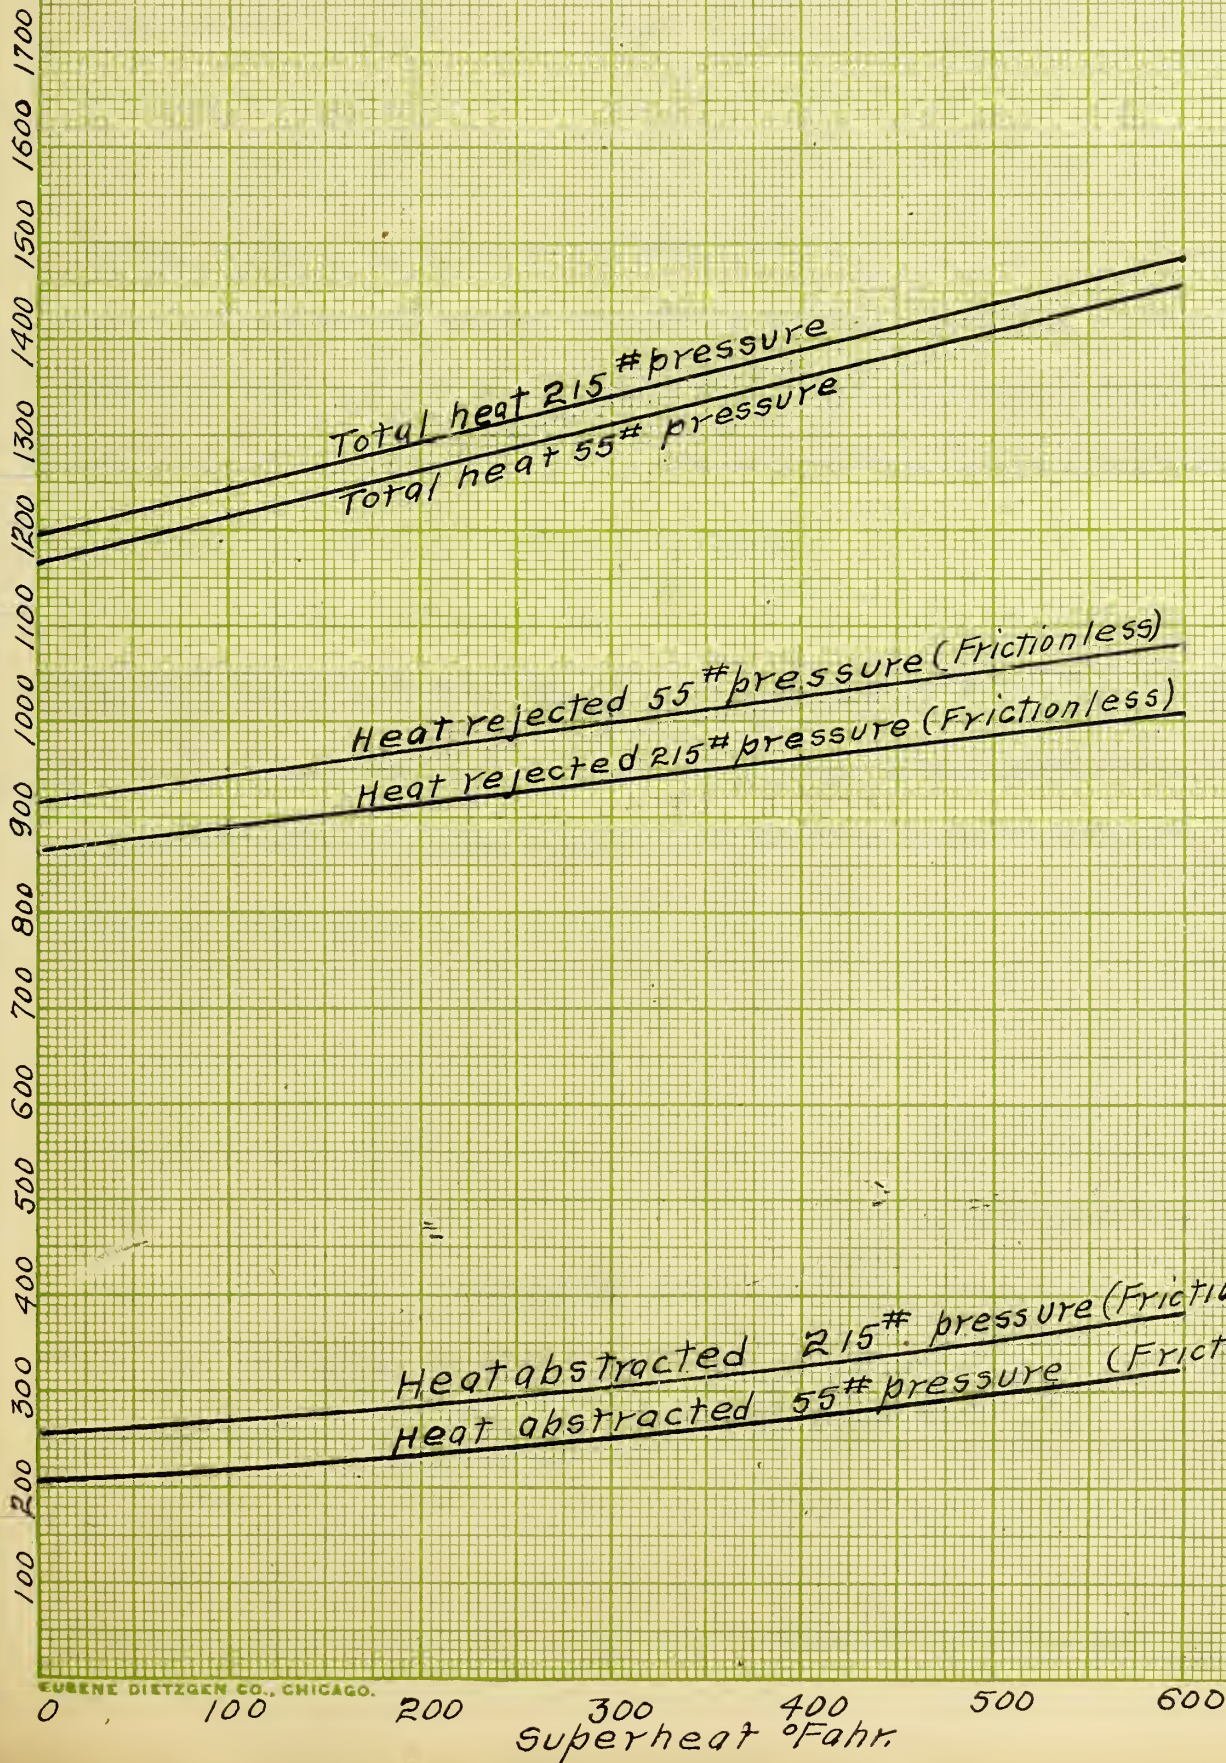 1700
1600
1500
1400
1300
1200
1100
1000
900
800
700
600
500
400
300
200
100
Total heat 215# pressure
Total heat 55# pressure
Heat rejected 55# pressure (Frictionless)
Heat rejected 215# pressure (Frictionless)
Heat abstracted 215# pressure (Frictio
Heat abstracted 55# pressure (Frict
EUGENE DIETZGEN CO., CHICAGO.
0 100 200 300 400 500 600
Superheat °Fahr.